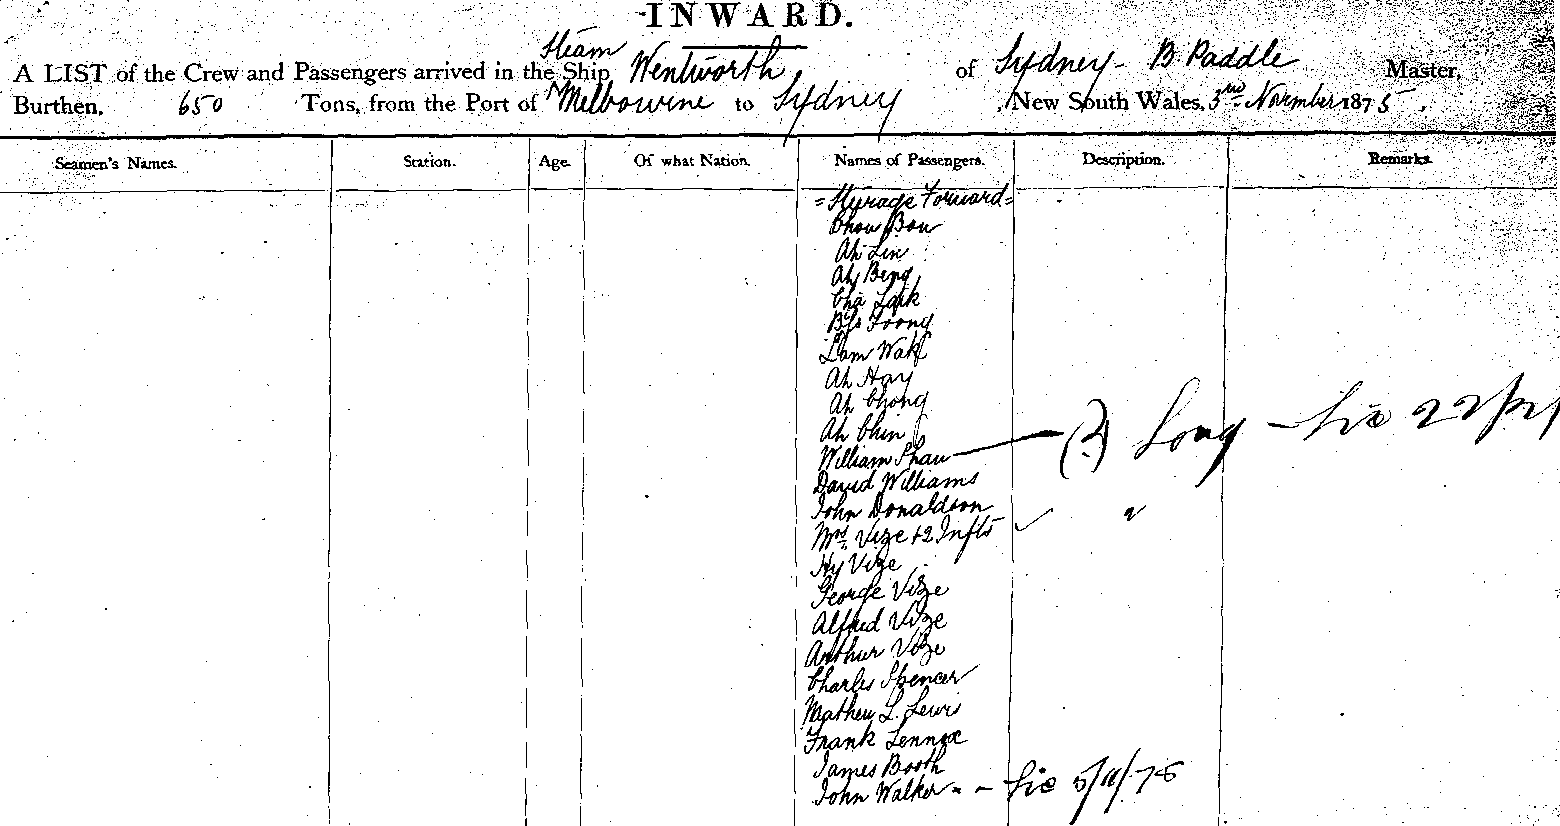 INWARD.
Steam
A LIST of the Crew and Passengers arrived in the Ship Wentworth of Sydney - B Paddle Master,
Burthen, 650 Tons, from the Port of Melbourne to Sydney New South Wales, 3rd November 1875.
Seamen's Names. Station. Age. Of what Nation. Names of Passengers. Description. Remarks.
= Styrage Forward =
Chou Bou
Ah Lin
Ah Beng
Cha Lark
Foong
Lam Wak
Ah Hoy
Ah Chong
Ah Chin
William Shaw (2) Long
David Williams
John Donaldson
Mrs. Vize +2 Infts "
Hy Vize
George Vize
Alfred Vize
Arthur Vize
Charles Spencer
Mathew L. Lewis
Frank Lennox
James Booth
John Walker 5/11/75